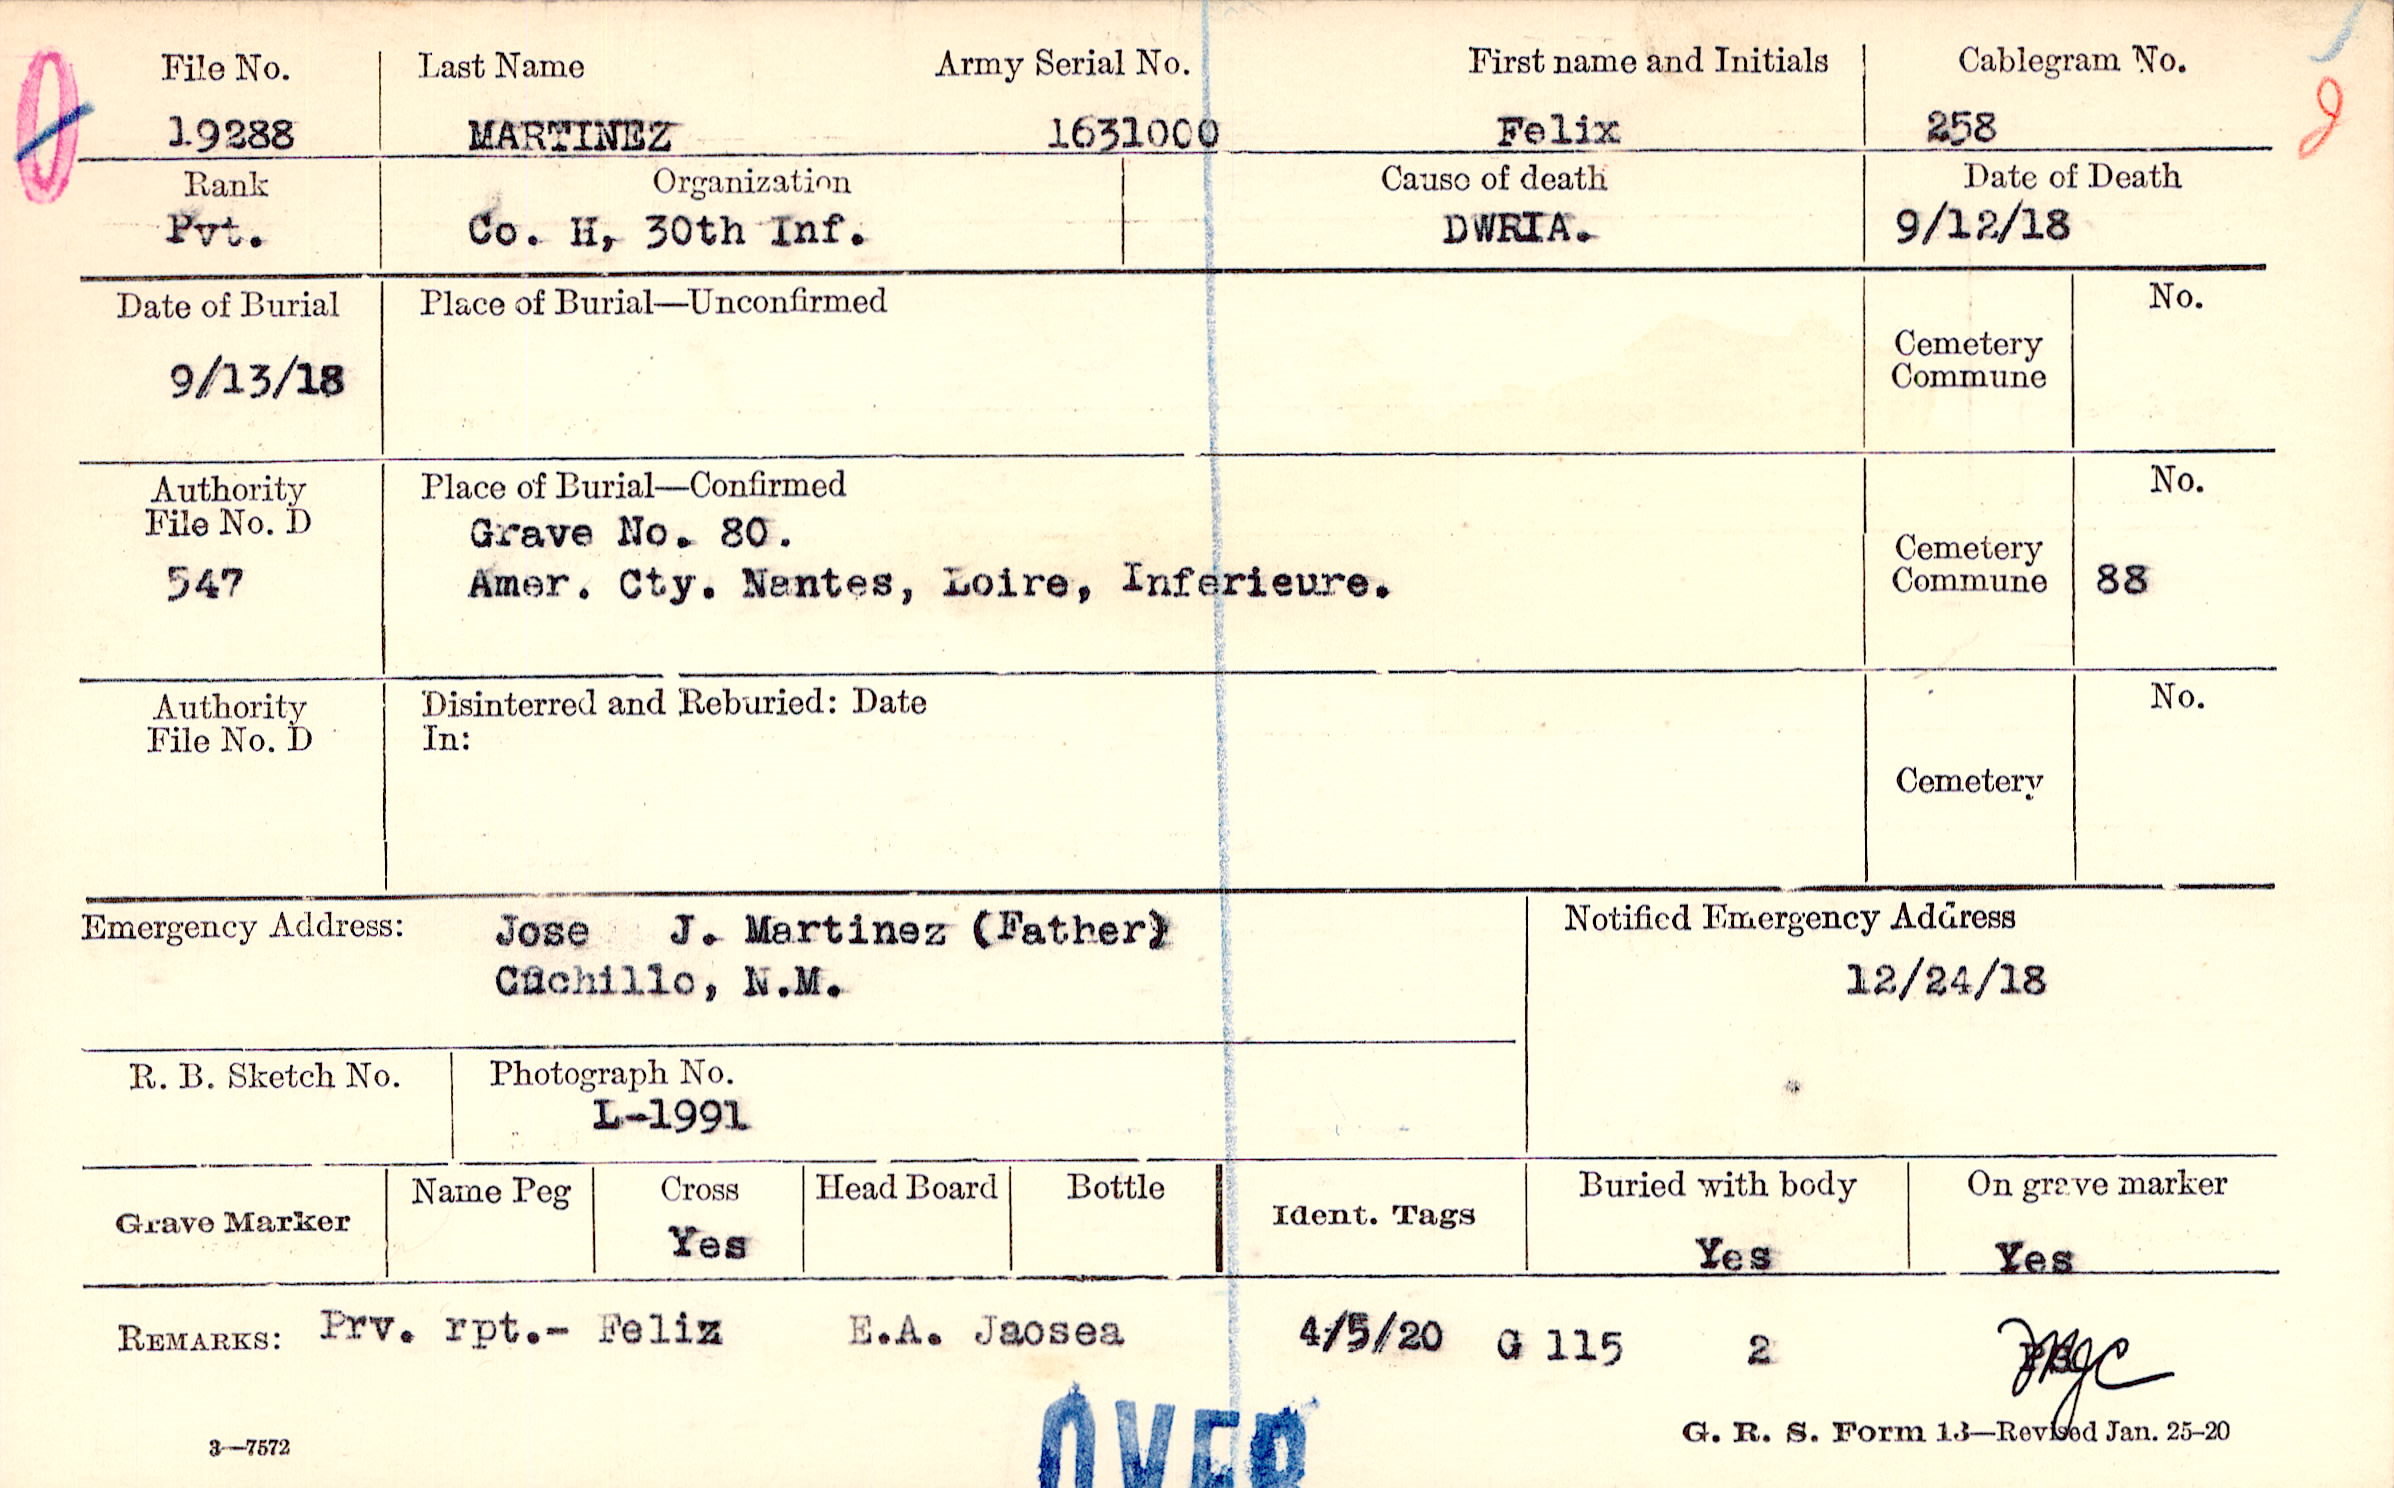 File No. Last Name Army Serial No. First name and Initials Cablegram No.
19288 MARTINEZ 1631000 Felix 258
Rank Organization Cause of death Date of Death
Pvt. Co. H, 30th Inf. DWRIA. 9/12/18
Date of Burial Place of Burial—Unconfirmed No.
Cemetery
Commune
9/13/18
Authority Place of Burial—Confirmed No.
File No. D Grave No. 80.
Cemetery
547 Amer. Cty. Nantes, Loire, Inferieure. Commune 88
Authority Disinterred and Reburied: Date No.
File No. D In:
Cemetery
Emergency Address: Jose J. Martinez (Father) Notified Emergency Address
Cuchillo, N.M. 12/24/18
R. B. Sketch No. Photograph No.
L-1991
Name Peg Cross Head Board Bottle Buried with body On grave marker
Grave Marker Ident. Tags
Yes Yes Yes
REMARKS: Prv. rpt.- Feliz E.A. Jaosea 4/5/20 G 115 2
3—7572 G. R. S. Form 13—Revised Jan. 25-20
OVER